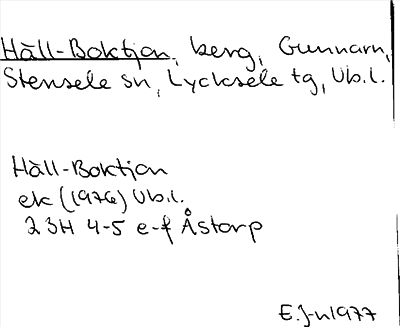 Håll-Boktjan, berg, Gunnarn,
Stensele sn, Lycksele tg, Vb.l.
Håll-Boktjan
ek (1976) Vb.l.
23H 4-5 e-f Åstorp
E.J-n 1977